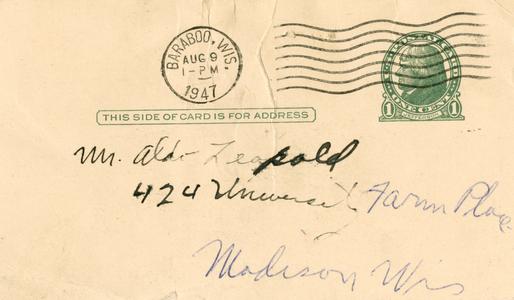 BARABOO, WIS.
AUG 9
1-PM
1947
U.S. POSTAGE
1 ONE CENT 1
JEFFERSON
THIS SIDE OF CARD IS FOR ADDRESS
Mr. Aldo Leopold
424 Universit Farm Place
Madison Wis